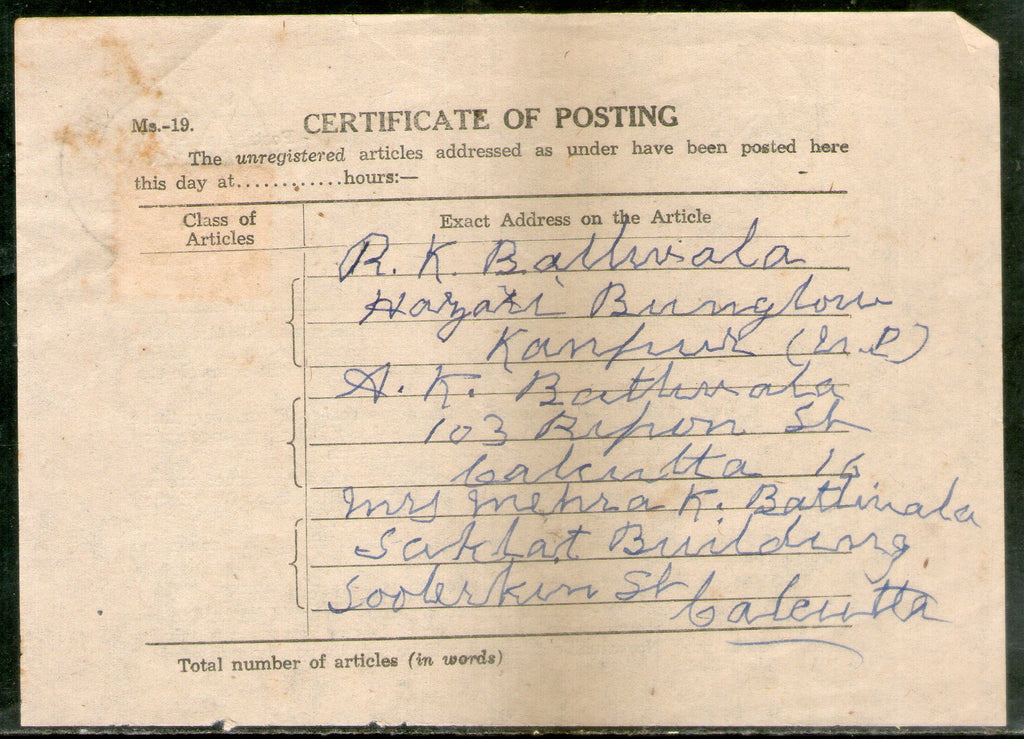 Ms.-19.
CERTIFICATE OF POSTING
The unregistered articles addressed as under have been posted here
this day at............hours:—
Class of
Articles
Exact Address on the Article
R. K. Bathwala
Hazari Bunglow
Kanpur (U.P)
A. K. Bathwala
103 Ripon St
Calcutta 16
Mrs Mehra K. Batliwala
Saklat Building
St Calcutta
Total number of articles (in words)